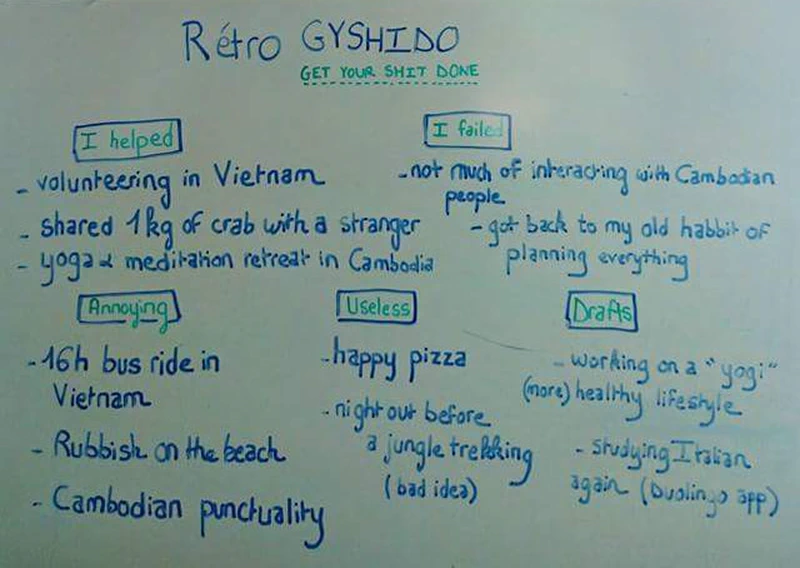 Rétro GYSHIDO
GET YOUR SHIT DONE
I helped
- volunteering in Vietnam
- shared 1kg of crab with a stranger
- yoga & meditation retreat in Cambodia
I failed
- not much of interacting with Cambodian
people
- got back to my old habbit of
planning everything
Annoying
- 16h bus ride in
Vietnam
- Rubbish on the beach
- Cambodian punctuality
Useless
- happy pizza
- night out before
a jungle trekking
(bad idea)
Drafts
- working on a "yogi"
(more) healthy lifestyle
- studying Italian
again (Duolingo app)